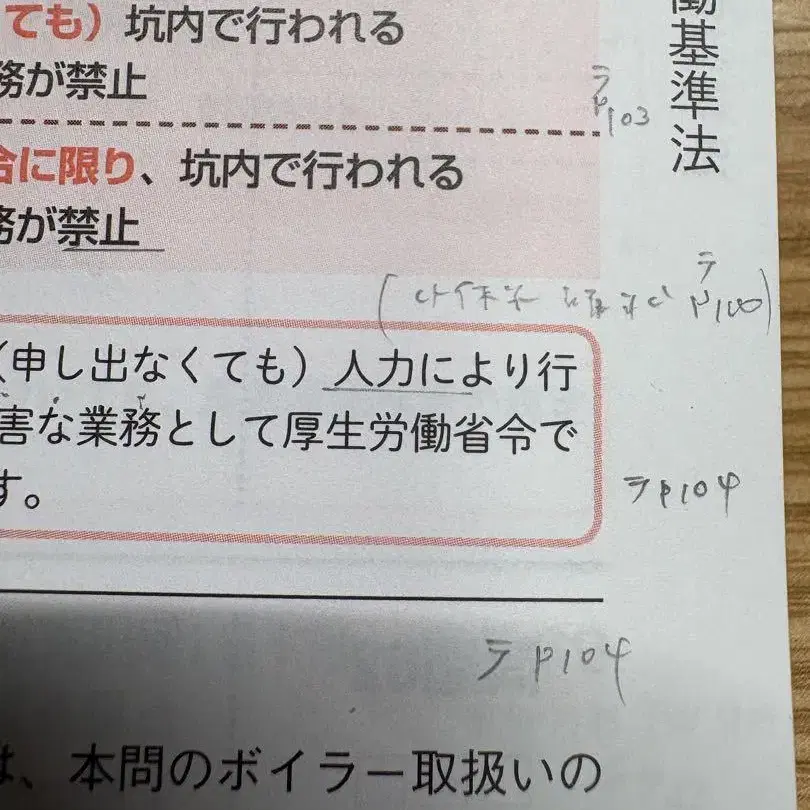 ても）坑内で行われる
務が禁止
合に限り、坑内で行われる
務が禁止
働基準法
テ
P103
テ
P100
（申し出なくても）人力により行
害な業務として厚生労働省令で
す。
テP104
テP104
は、本問のボイラー取扱いの